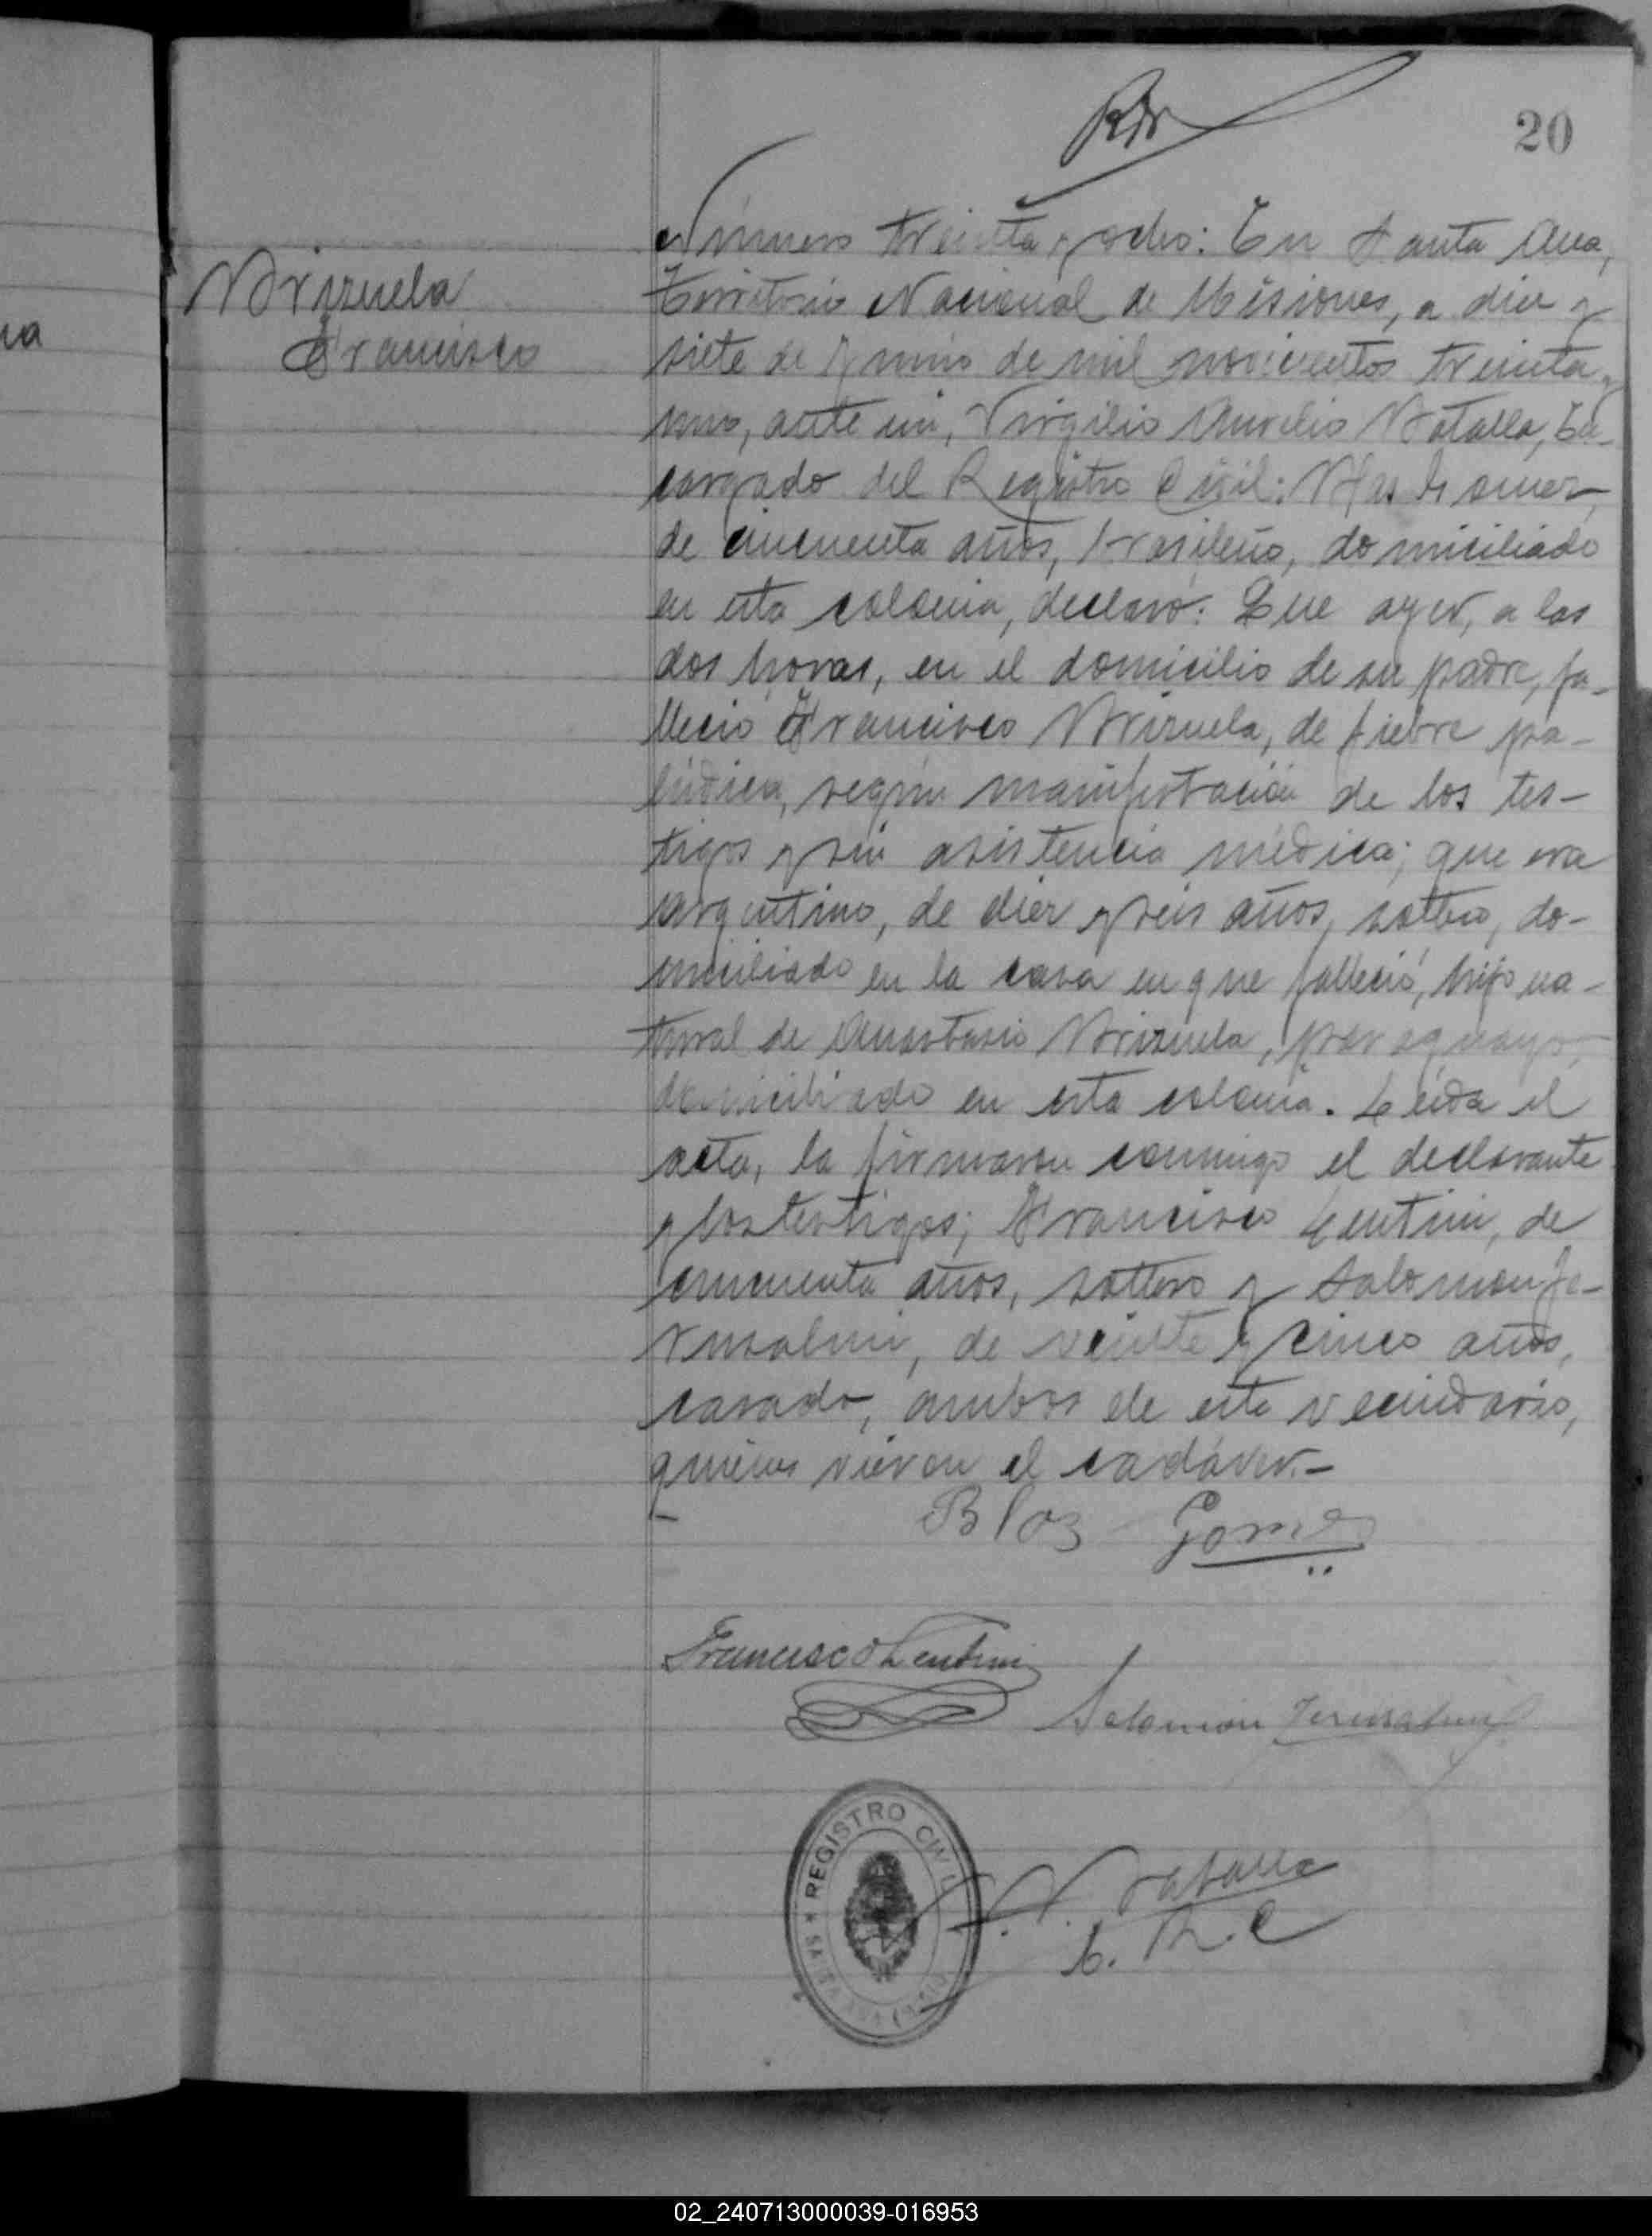 20
Brizuela
Francisco
na
Número treinta y ocho: En Santa Ana,
Territorio Nacional de Misiones, a diez y
siete de Junio de mil novecientos treinta y
uno, ante mi, Virgilio Aurelio Batalla, En-
cargado del Registro Civil: Blas Gomez,
de cincuenta años, brasileño, domiciliado
en esta colonia, declaró: Que ayer, a las
dos horas, en el domicilio de su padre, fa-
lleció Francisco Brizuela, de fiebre pa-
lúdica, según manifestación de los tes-
tigos y sin asistencia médica; que era
argentino, de diez y seis años, soltero, do-
miciliado en la casa en que falleció, hijo na-
tural de Anastasio Brizuela, paraguayo,
domiciliado en esta colonia. Leída el
acta, la firmaron conmigo el declarante
y los testigos; Francisco Lentini, de
cincuenta años, soltero y Salomon Je-
rusalmi, de veinte y cinco años,
casado, ambos de este vecindario,
quienes vieron el cadáver.-
Blas Gomez
Francisco Lentini
Salomon Jerusalmi
REGISTRO CIVIL
V. A. Batalla
E. R. C
02_240713000039-016953